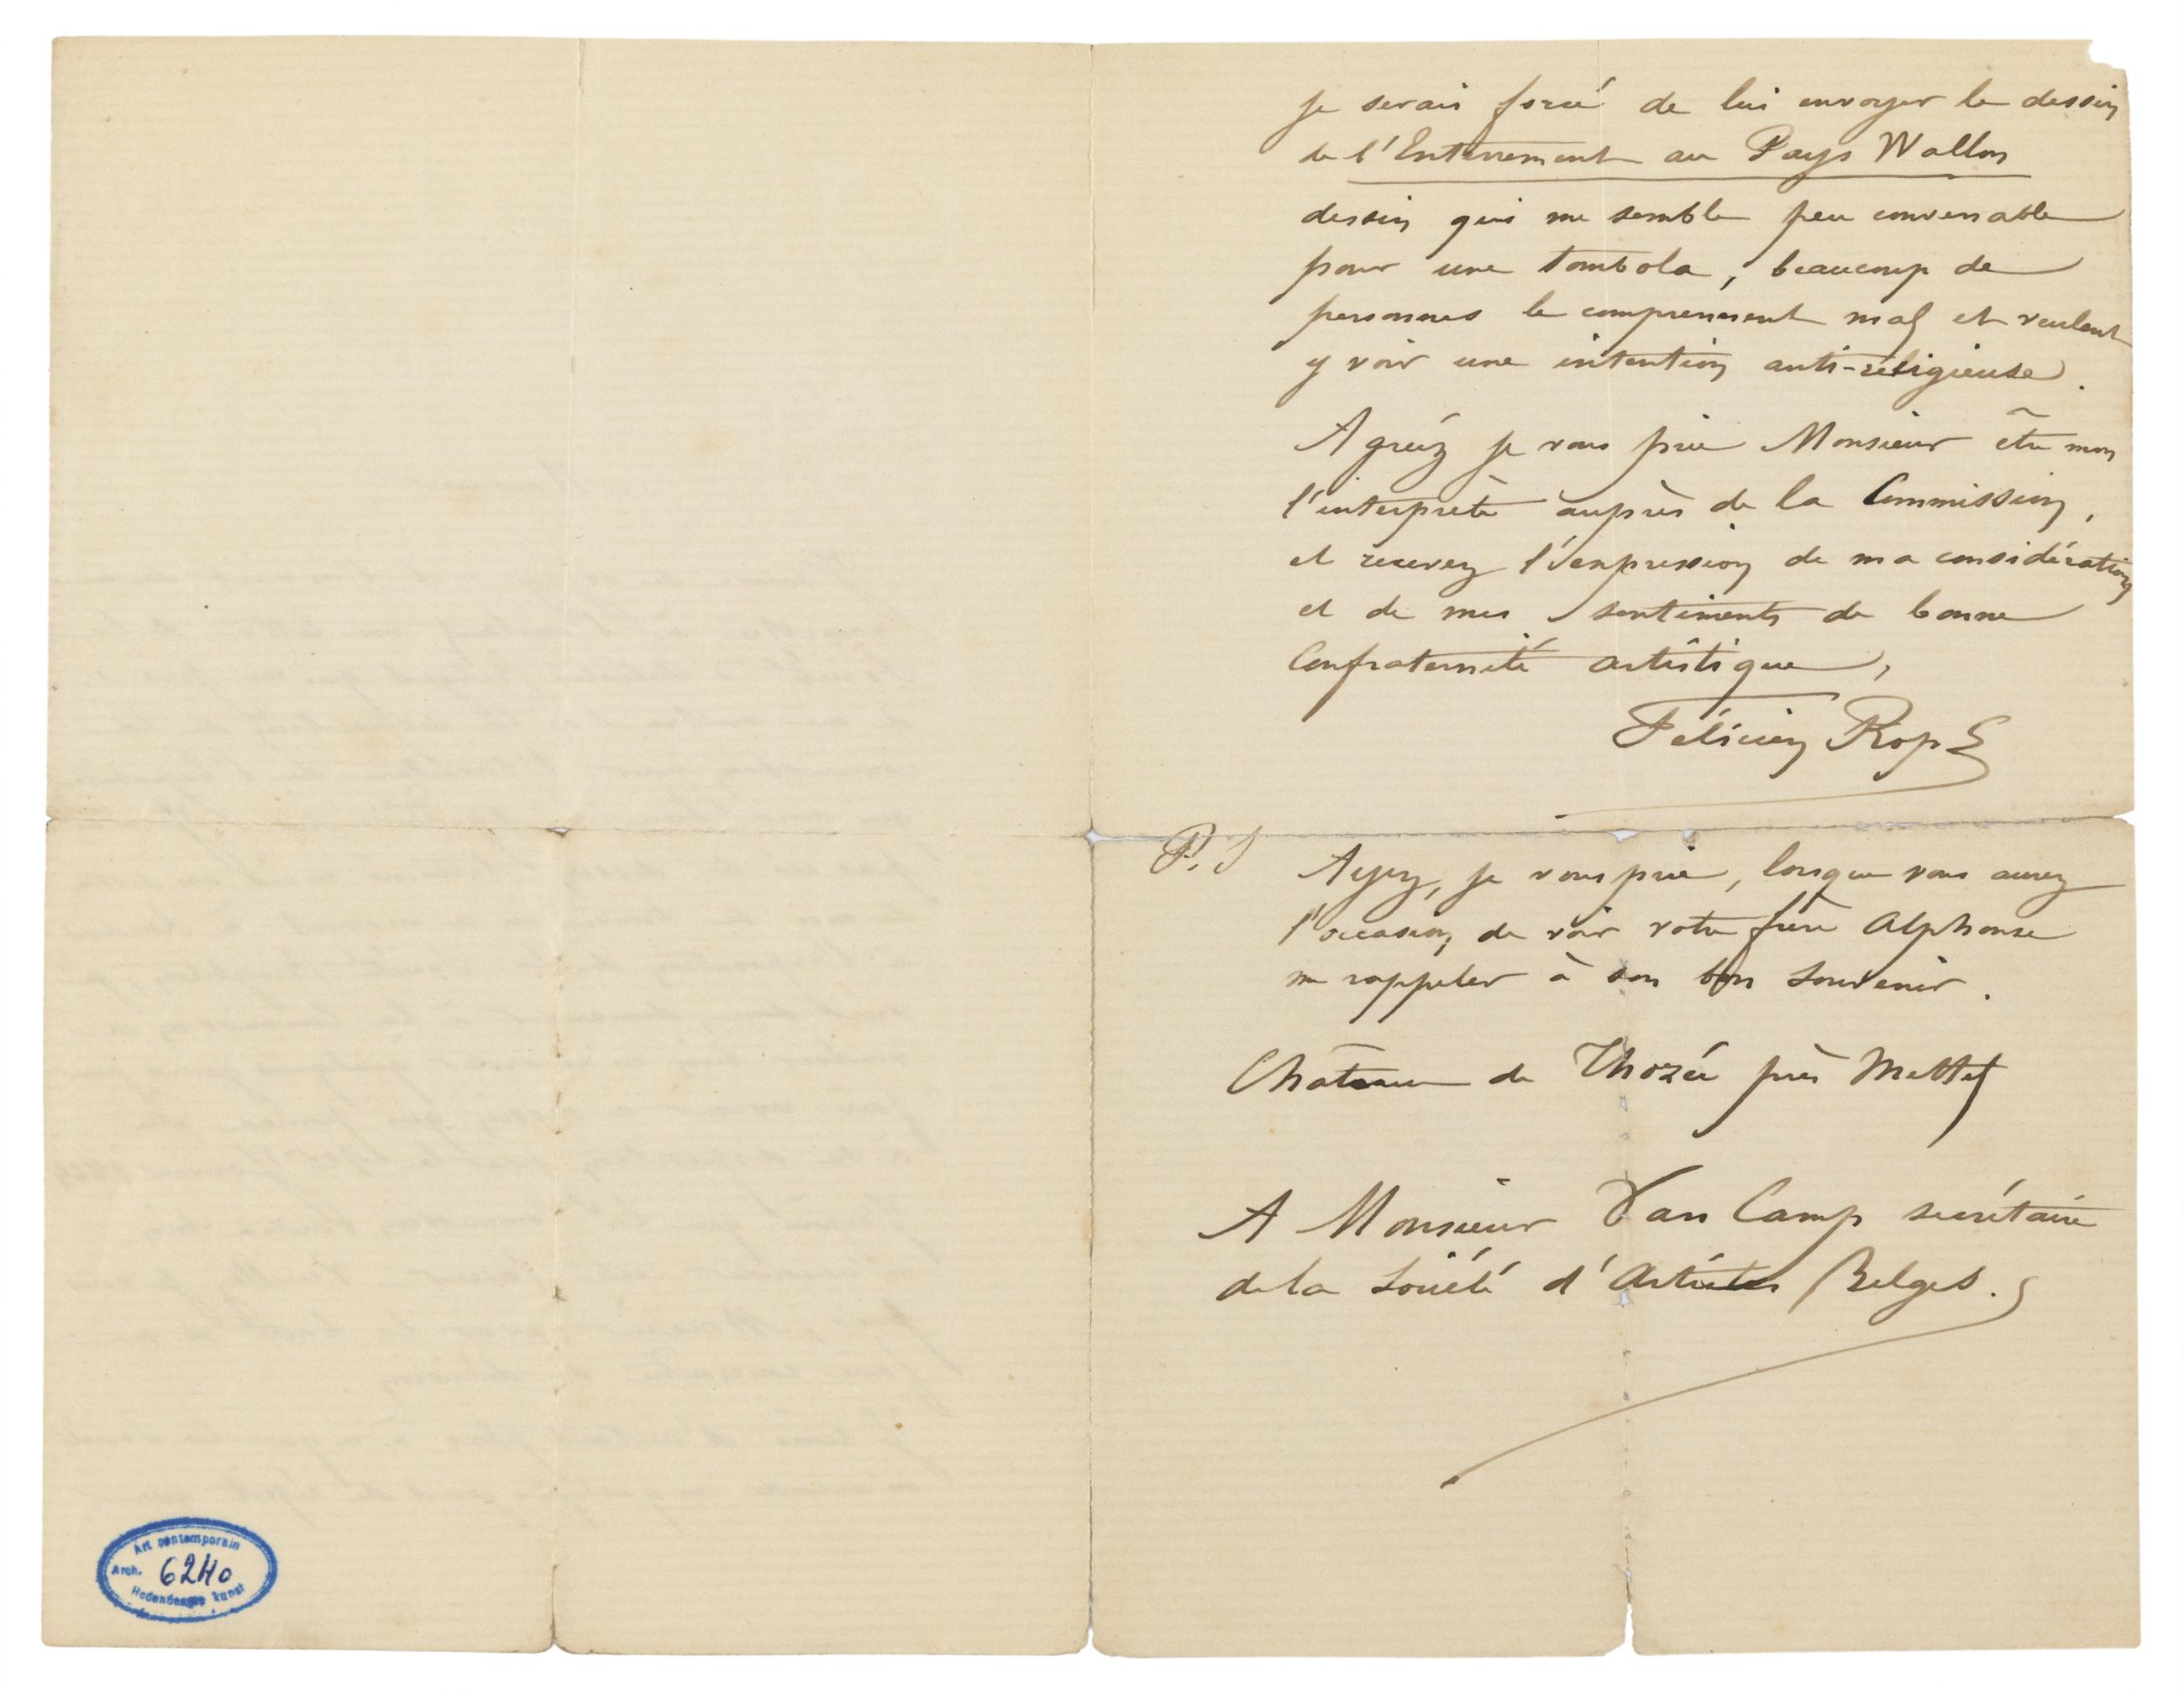 je serais forcé de lui envoyer le dessin
de l'Enterrement au Pays Wallon
dessin qui me semble peu convenable
pour une tombola, beaucoup de
personnes le comprennent mal et veulent
y voir une intention anti-religieuse.
Agréez je vous prie Monsieur être mon
l'interprète auprès de la Commission,
et recevez l'expression de ma considération
et de mes sentiments de bonne
Confraternité artistique,
Félicien Rops
P.S Ayez, je vous prie, lorsque vous aurez
l'occasion de voir votre frère Alphonse
me rappeler à son bon souvenir.
Château de Thozée près Mettet
A Monsieur Van Camp secrétaire
de la Société d'Artistes Belges.
Art contemporain
Arch. 6240
Hedendaagse kunst